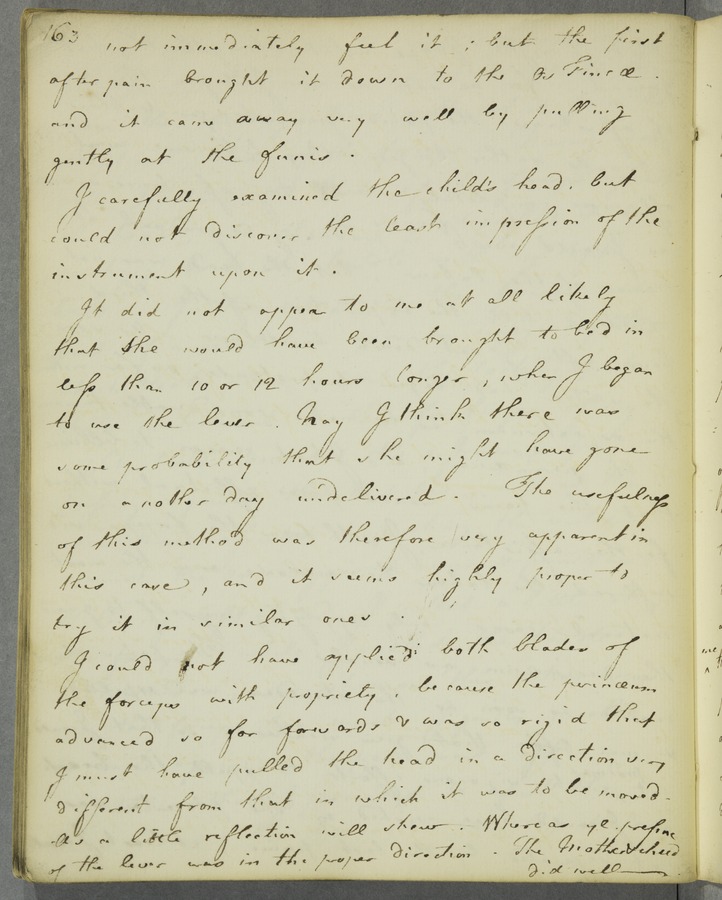 163
not immediately feel it ; but the first
after pain brought it down to the Os Tincæ .
and it came away very well by pulling
gently at the funis .
I carefully examined the child's head, but
could not discover the least impression of the
instrument upon it .
It did not appear to me at all likely
that she would have been brought to bed in
less than 10 or 12 hours longer , when I began
to use the lever . Nay I think there was
some probability that she might have gone
on another day undelivered . The usefulness
of this method was therefore very apparent in
this case , and it seems highly proper to
try it in similar ones .
I could not have applied both blades of
the forceps with propriety , because the perinæum
advanced so far forwards & was so rigid that
I must have pulled the head in a direction very
different from that in which it was to be moved.
As a little reflection will shew . Whereas ye
of the lever was in the proper direction . The Mother & child
did well